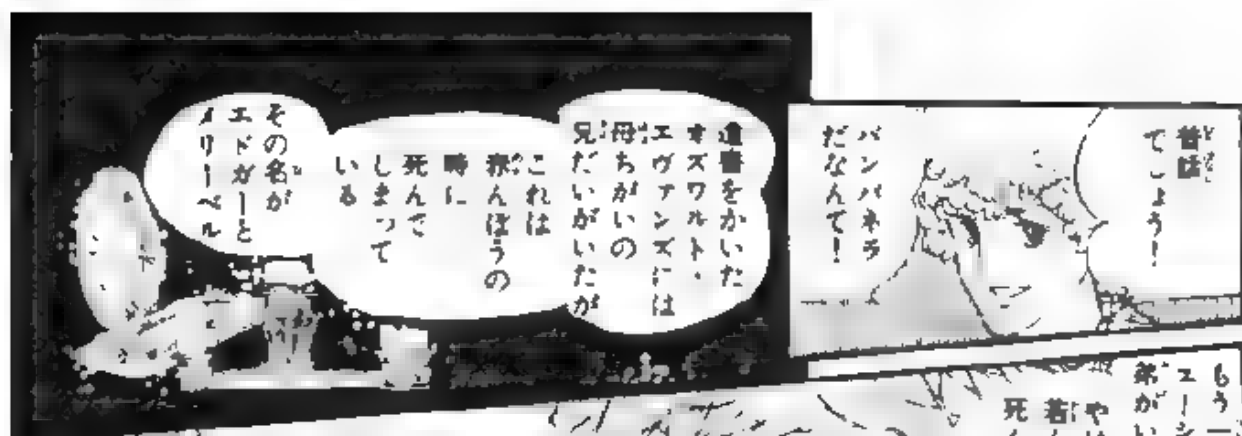 昔話
でしょう!
バンパネラ
だなんて!
遺書をかいた
オズワルト・
エヴァンズには
母ちがいの
兄だいがいたが
これは
赤んぼうの
時に
死んで
しまって
いる
その名が
エドガーと
メリーベル
もう一
ユーシ
弟がい
やは
若く
死